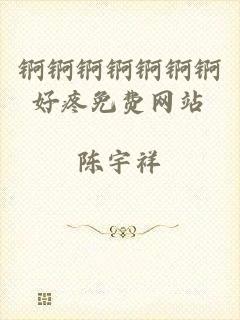 锕锕锕锕锕锕锕
好疼免费网站
陈宇祥